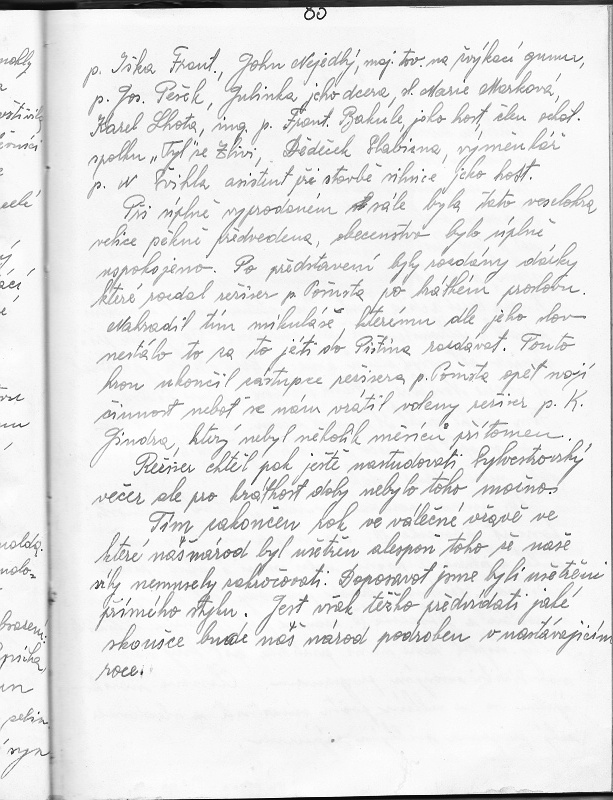 85
p. Iška Frant., John Nejedlý, maj. tov. na žvýkací gumu,
p. Jos. Pešek, Julinka, jeho dcera, sl. Marie Marková,
Karel Lhota, ing. p. Frant. Bakule jeho host člen ochot.
spolku „Tyl" ze Zlivi, Dědeček Slabina, výměnkář
p. V Švihla asistent při stavbě silnice jeho host.
Při úplně vyprodaném sále byla tato veselohra
velice pěkně předvedena, obecenstvo bylo úplně
uspokojeno. Po představení byly rozdány dárky
které rozdal režiser p. Pošusta po krátkém proslovu.
Nahradil tím mikuláše, kterému dle jeho slov
nestálo to za to jéti do Pištína rozdávat. Touto
hrou ukončil zástupce režisera p. Pošusta opět svoji
činnost neboť se nám vrátil vdečny režiser p. K.
Jindra, který nebyl několik měsíců přítomen.
Režiser chtěl pak ještě nastudovati Sylvestrovský
večer ale pro krátkost doby nebylo toho možno.
Tím zakončen rok ve válečné vřavě ve
které náš národ byl ušetřen alespoň toho že naše
nemusely zakročovati. Doposavat jsme byli ušetřeni
přímého styku. Jest však těžko předvídati jaké
zkoušce bude náš národ podroben v nastávajícím
roce.